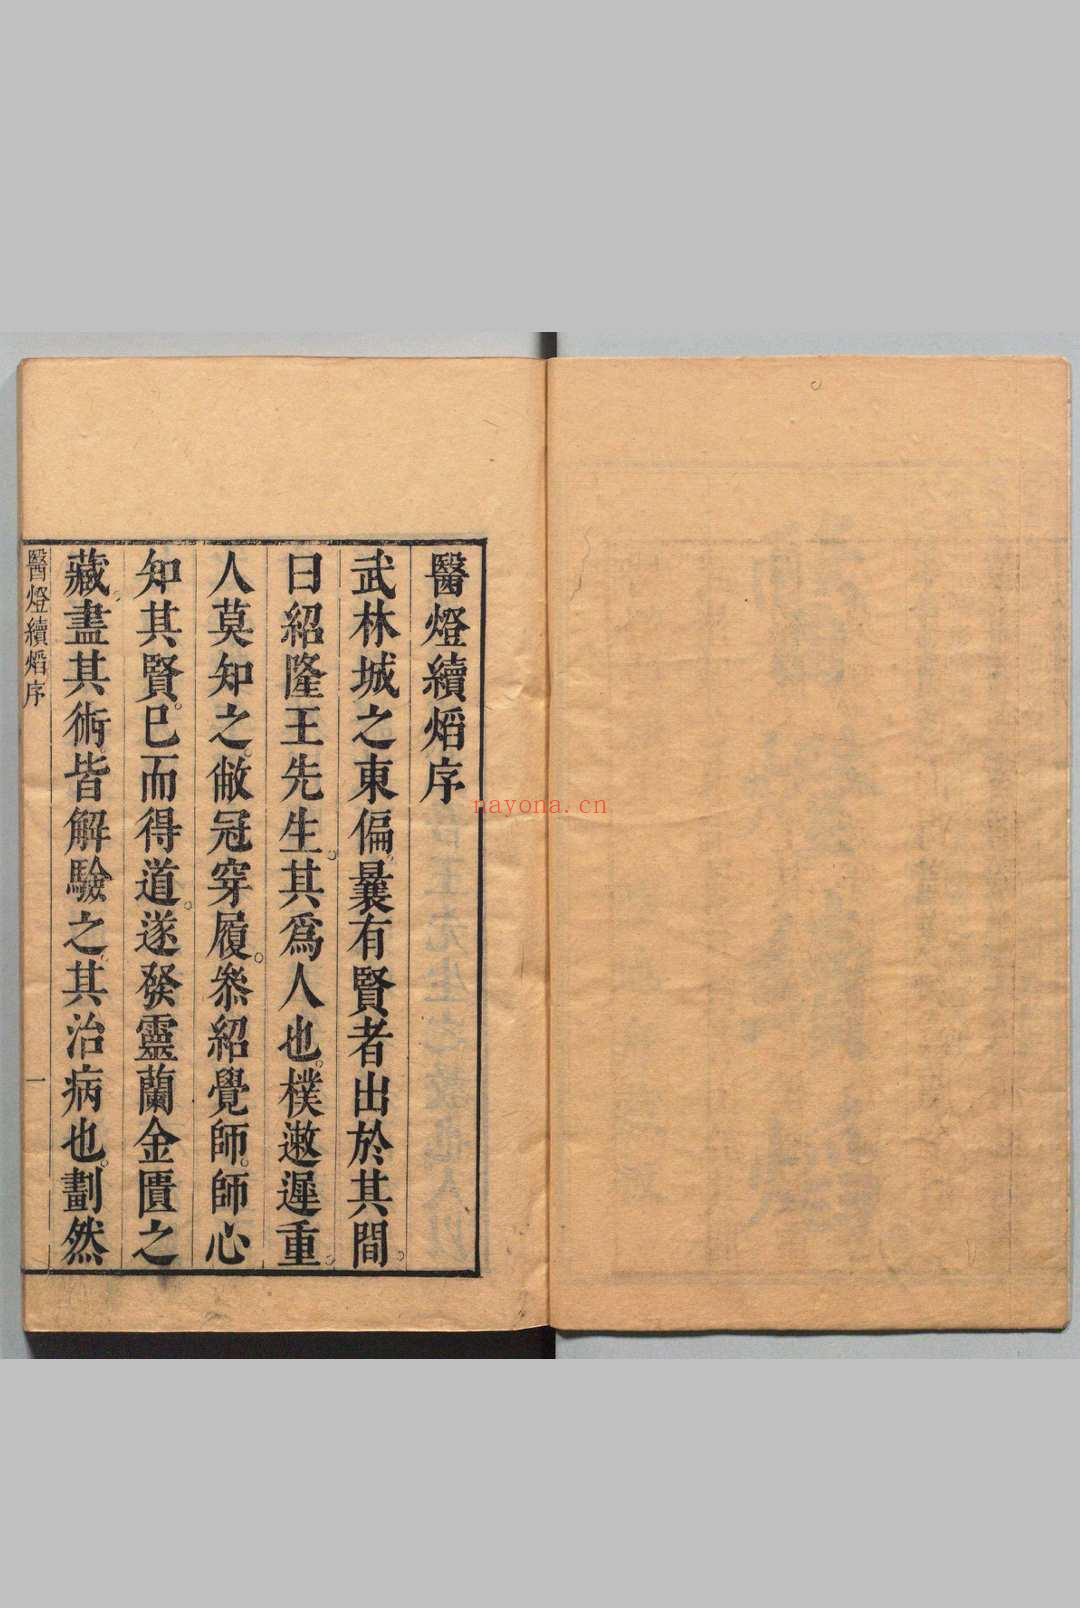 醫燈續焰序
武林城之東偏曩有賢者出於其間。
曰紹隆王先生。其爲人也。樸遬遲重。
人莫知之。敝冠穿履。叅紹覺師。師心
知其賢。已而得道。遂發靈蘭金匱之
藏。盡其術。皆解驗之。其治病也。劃然
醫燈續焰序
一
nayona.cn